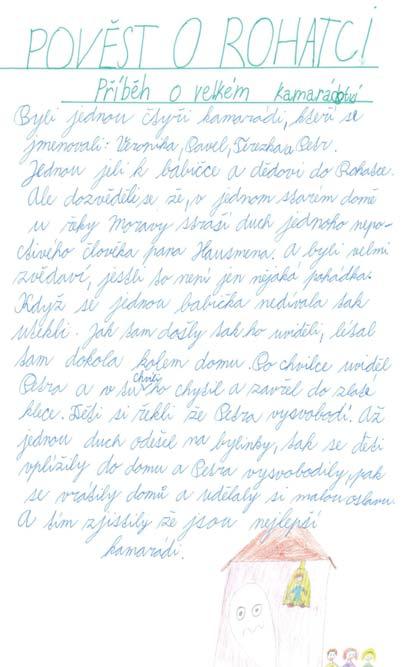 POVĚST O ROHATCI
Příběh o velkém kamarádství
Byli jednou čtyři kamarádi, kteří se
jmenovali: Veronika, Pavel, Terezka a Petr.
Jednou jeli k babičce a dědovi do Rohatce.
Ale dozvěděli se že, v jednom starém domě
u řeky Moravy straší duch jednoho nepo-
ctivého člověka pana Hausmena. A byli velmi
zvědaví, jestli to není jen nějaká pohádka.
Když se jednou babička nedívala tak
utekli. Jak tam došly tak ho uviděli, létal
tam dokola kolem domu. Po chvilce uviděl
Petra a v tu chvíli ho chytil a zavřel do zlaté
klece. Děti si řekli že Petra vysvobodí. Až
jednou duch odešel na bylinky, tak se děti
vplížily do domu a Petra vysvobodily, pak
se vrátily domů a udělaly si malou oslavu.
A tím zjistily že jsou nejlepší
kamarádi.